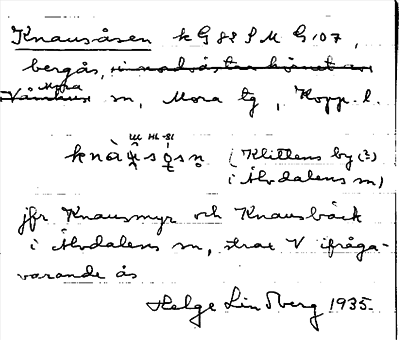 Knausåsen k G 88 S M G 107,
bergås, i nordvästra hörnet av
Våmhus Mora sn, Mora tg, Kopp. l.
(Klittens by(?)
i Älvdalens sn)
jfr Knausmyr och Knausbäck
i Älvdalens sn, strax V ifråga-
varande ås
Helge Lindberg 1935.